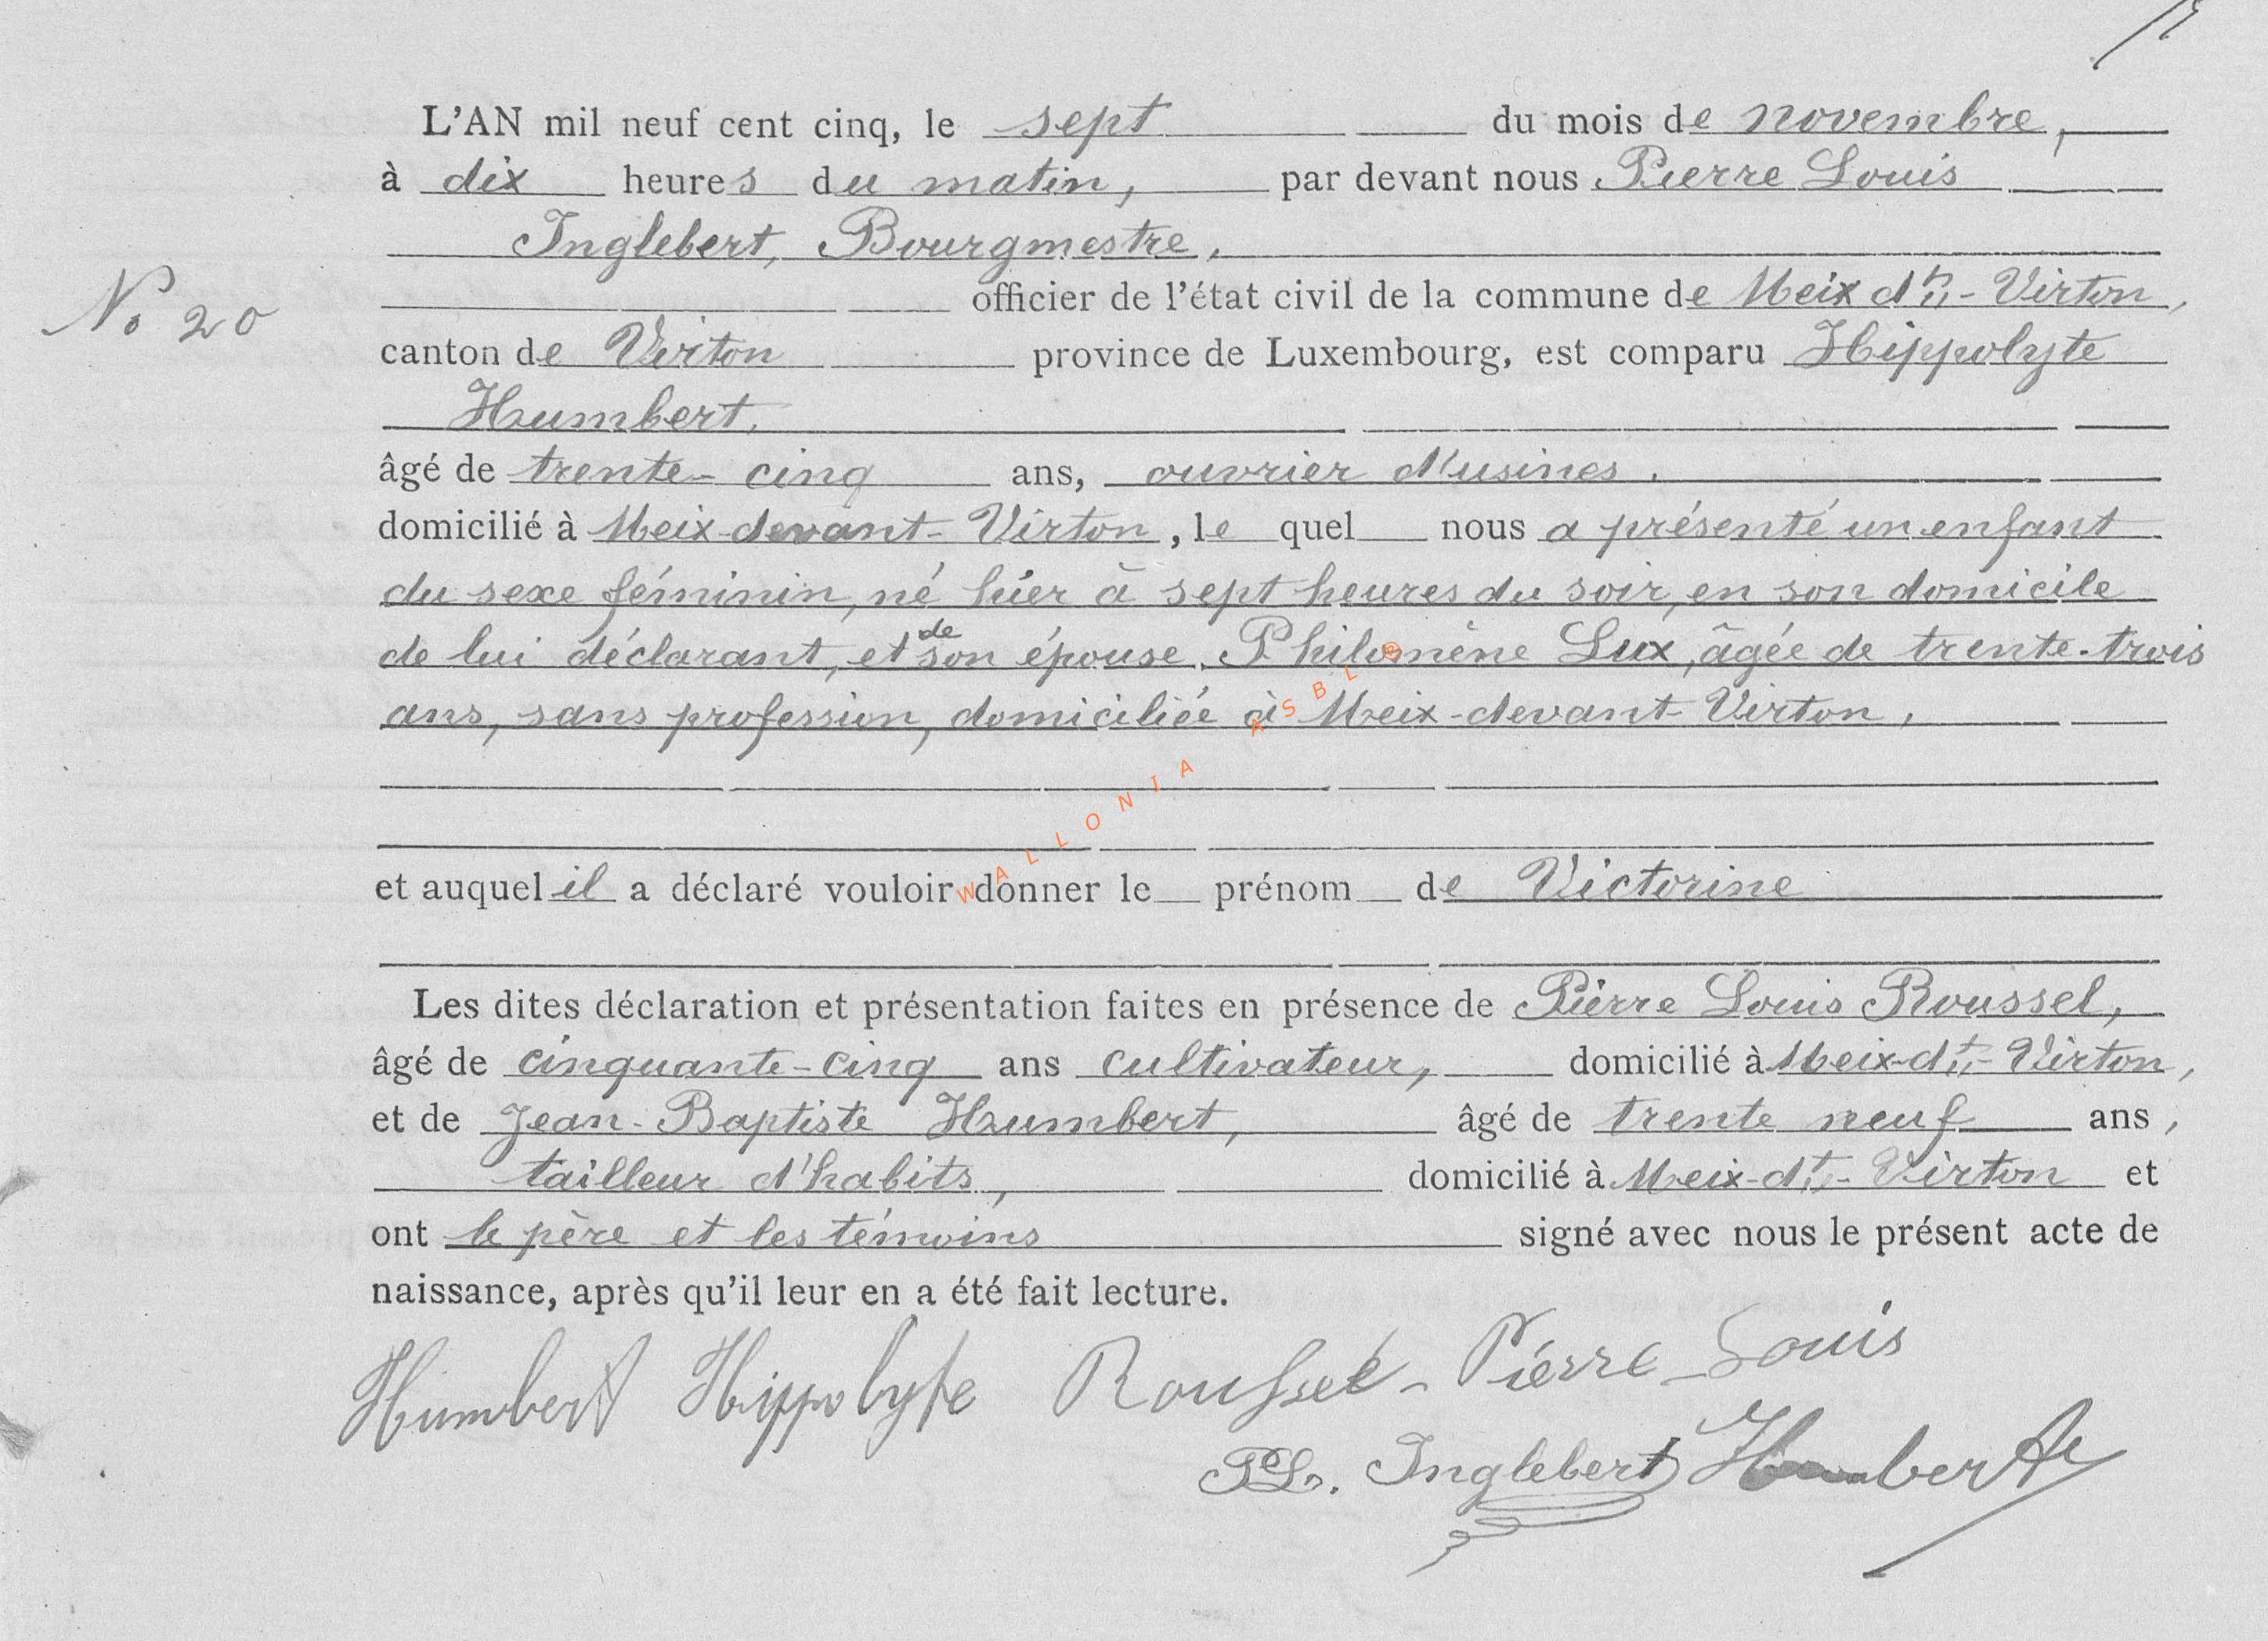 L'AN mil neuf cent cinq, le sept du mois de novembre,
à dix heures du matin, par devant nous Pierre Louis
Inglebert, Bourgmestre,
officier de l'état civil de la commune de Meix dt-Virton,
N° 20
canton de Virton province de Luxembourg, est comparu Hippolyte
Humbert,
âgé de trente-cinq ans, ouvrier d'usines.
domicilié à Meix-devant-Virton, le quel nous a présenté un enfant
du sexe féminin, né hier à sept heures du soir, en son domicile
de lui déclarant, et de son épouse, Philomène Lux, âgée de trente-trois
ans, sans profession, domiciliée à Meix-devant-Virton,
WALLONIA ASBL
et auquel il a déclaré vouloir donner le prénom de Victorine
Les dites déclaration et présentation faites en présence de Pierre Louis Roussel,
âgé de cinquante-cinq ans cultivateur, domicilié à Meix-dt-Virton,
et de Jean-Baptiste Humbert, âgé de trente neuf ans,
tailleur d'habits, domicilié à Meix-dt-Virton et
ont le père et les témoins signé avec nous le présent acte de
naissance, après qu'il leur en a été fait lecture.
Humbert Hippolyte Roussel-Pierre-Louis
PL. Inglebert Humbert